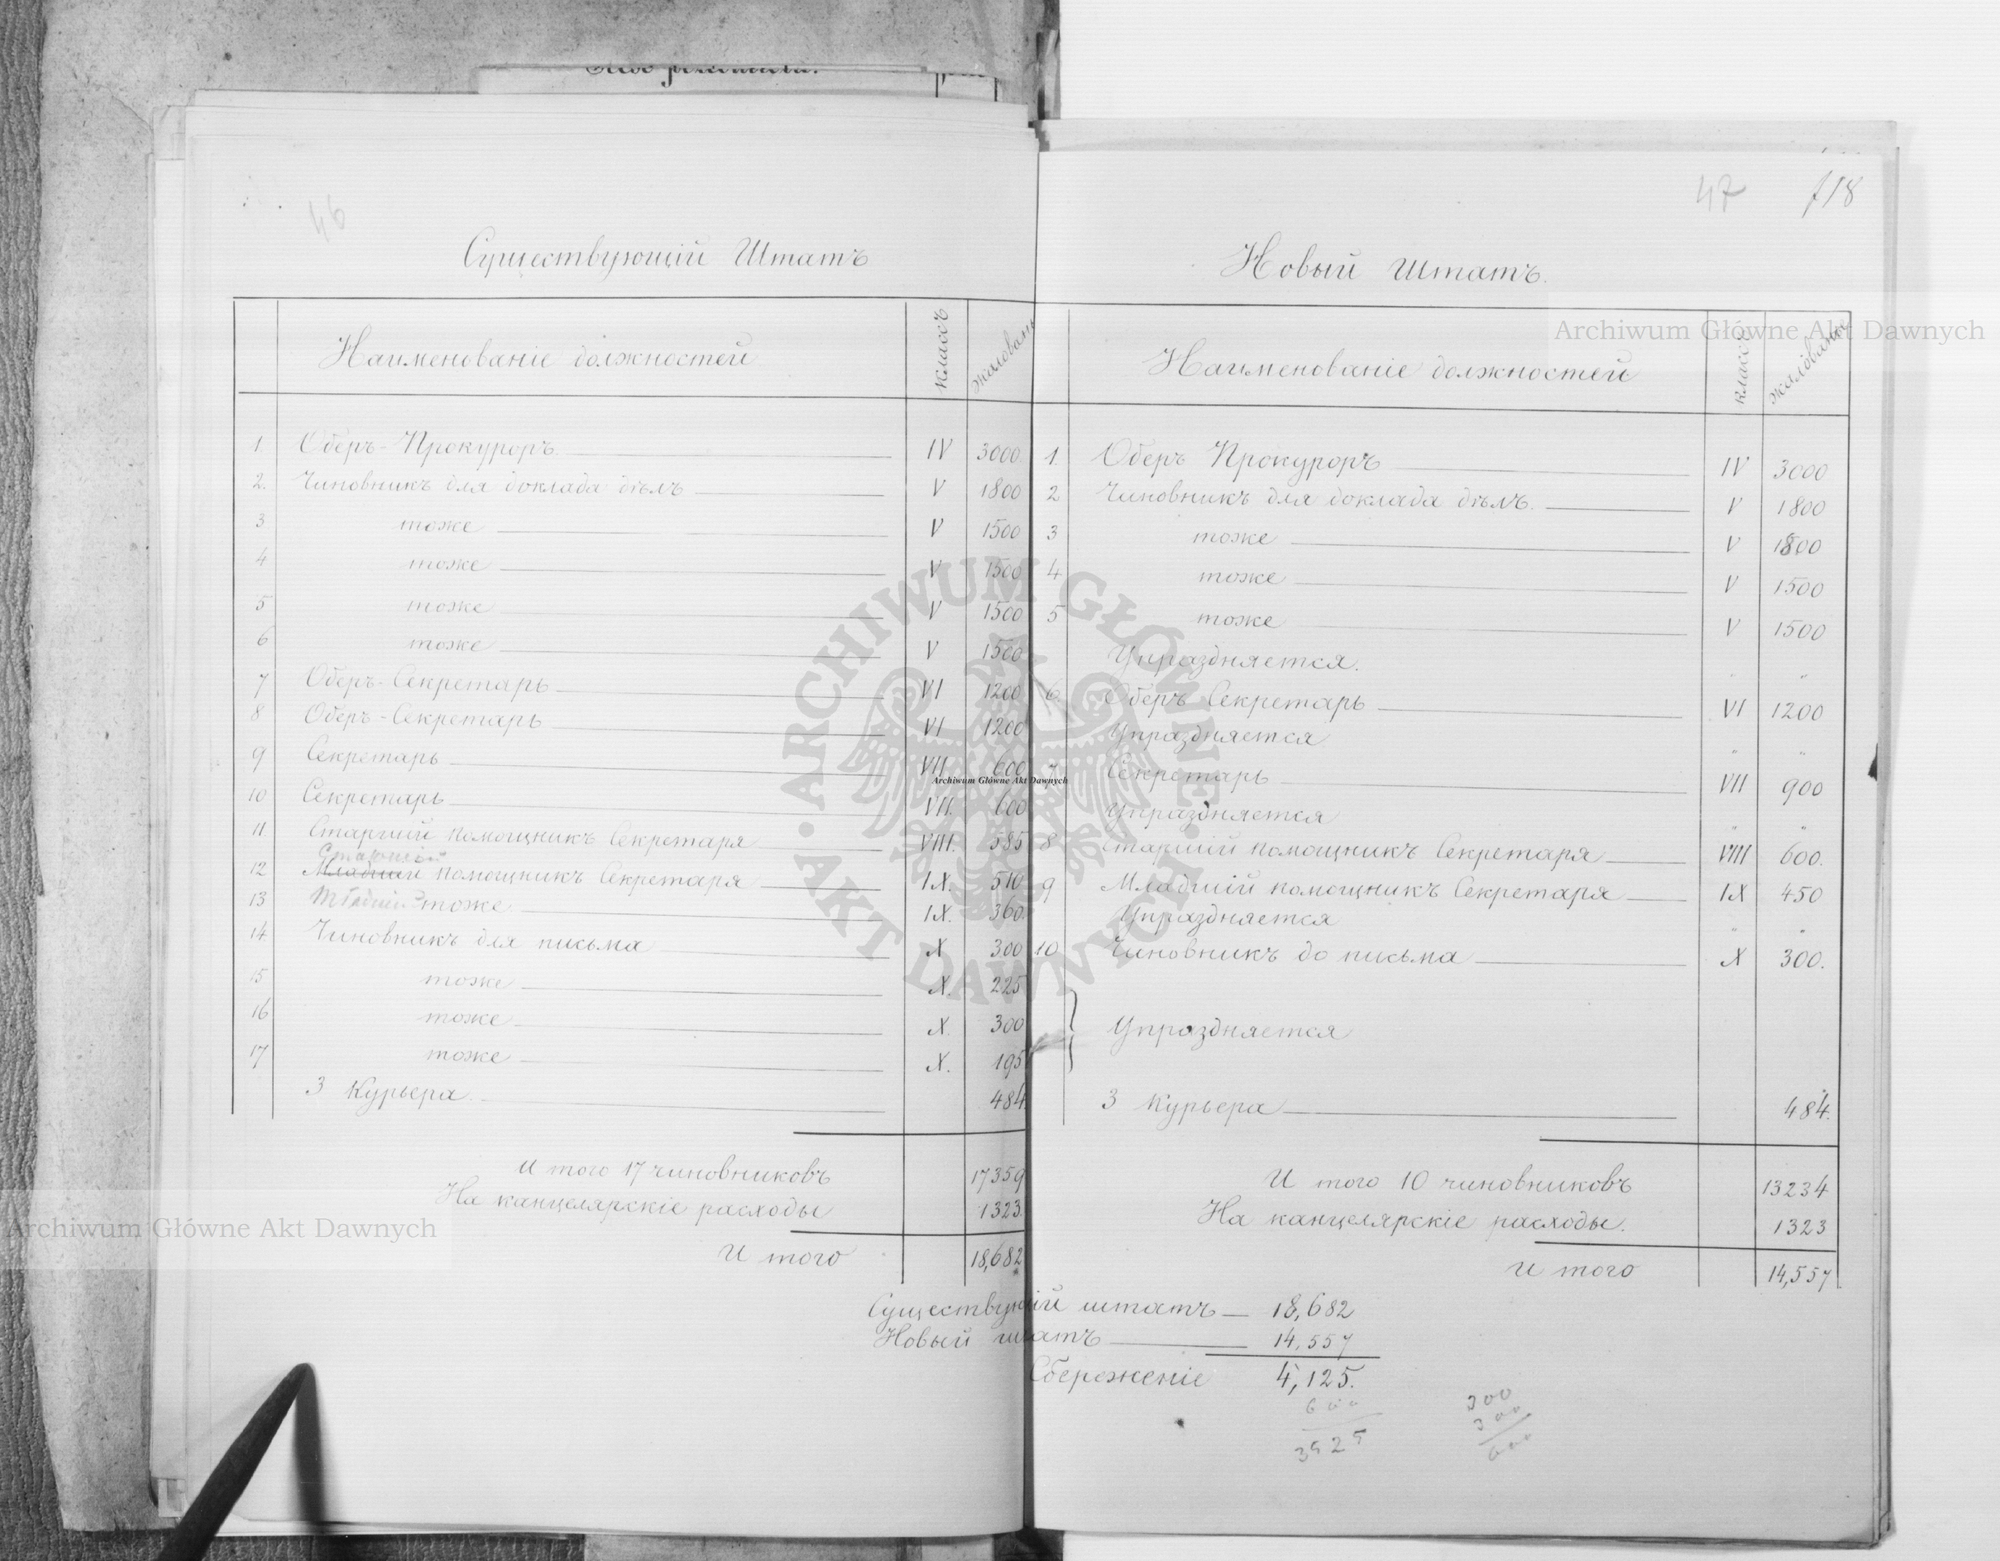 46
Существующій Штатъ
Наименованіе должностей классъ жалованье
1. Оберъ-Прокуроръ IV 3000.
2. Чиновникъ для доклада дѣлъ V 1800
3 тоже V 1500
4 тоже V 1500
5 тоже V 1500
6 тоже V 1500
7 Оберъ-Секретарь VI 1200
8 Оберъ-Секретарь VI 1200
9 Секретарь VII 600
10 Секретарь VII. 600
11 Старшій помощникъ Секретаря VIII. 585
Старшій
12 Младшій помощникъ Секретаря IX. 510
13 Младшій тоже IX. 360.
14 Чиновникъ для письма X 300
15 тоже X. 225
16 тоже X. 300
17 тоже X. 195
3 Курьера. 484.
И того 17 чиновниковъ 17359
На канцелярскіе расходы 1323.
И того 18,682
47 118
Новый Штатъ.
Наименованіе должностей классъ жалованье
1. Оберъ Прокуроръ IV 3000
2 Чиновникъ для доклада дѣлъ. V 1800
3 тоже V 1500
4 тоже V 1500
5 тоже V 1500
Упраздняется. " "
6. Оберъ Секретарь VI 1200
Упраздняется " "
7 Секретарь VII 900
Упраздняется " "
8 Старшій помощникъ Секретаря VIII 600.
9 Младшій помощникъ Секретаря IX 450
Упраздняется " "
10 Чиновникъ до письма X 300.
Упраздняется
3 Курьера 484.
И того 10 чиновниковъ 13234
На канцелярскіе расходы. 1323
И того 14,557
Существующій штатъ — 18,682
Новый штатъ 14,557
Сбереженіе 4,125.
600
3525
300
300
600
Archiwum Główne Akt Dawnych
Archiwum Główne Akt Dawnych
Archiwum Główne Akt Dawnych
ARCHIWUM GŁÓWNE • AKT DAWNYCH •